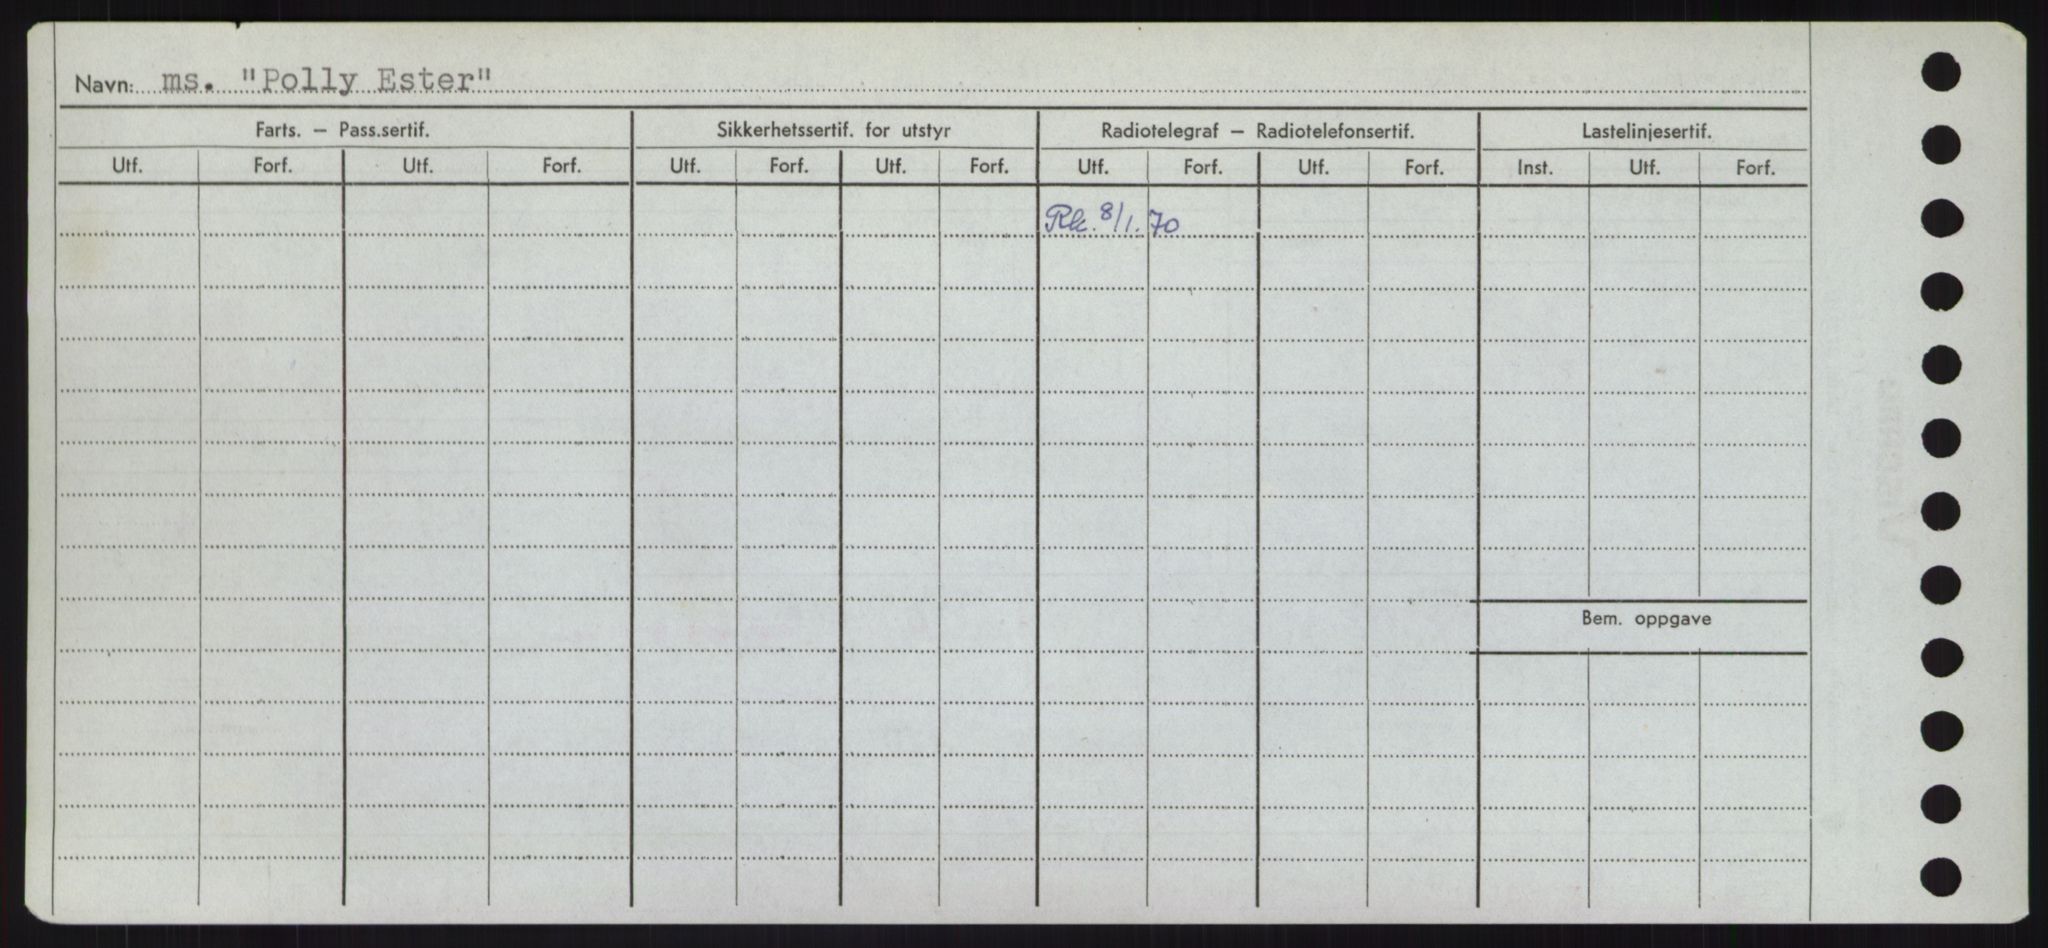 Navn: ms. "Polly Ester"
Farts. – Pass.sertif. Sikkerhetssertif. for utstyr Radiotelegraf – Radiotelefonsertif. Lastelinjesertif.
Utf. Forf. Utf. Forf. Utf. Forf. Utf. Forf. Utf. Forf. Utf. Forf. Inst. Utf. Forf.
Rk. 8/1. 70
Bem. oppgave